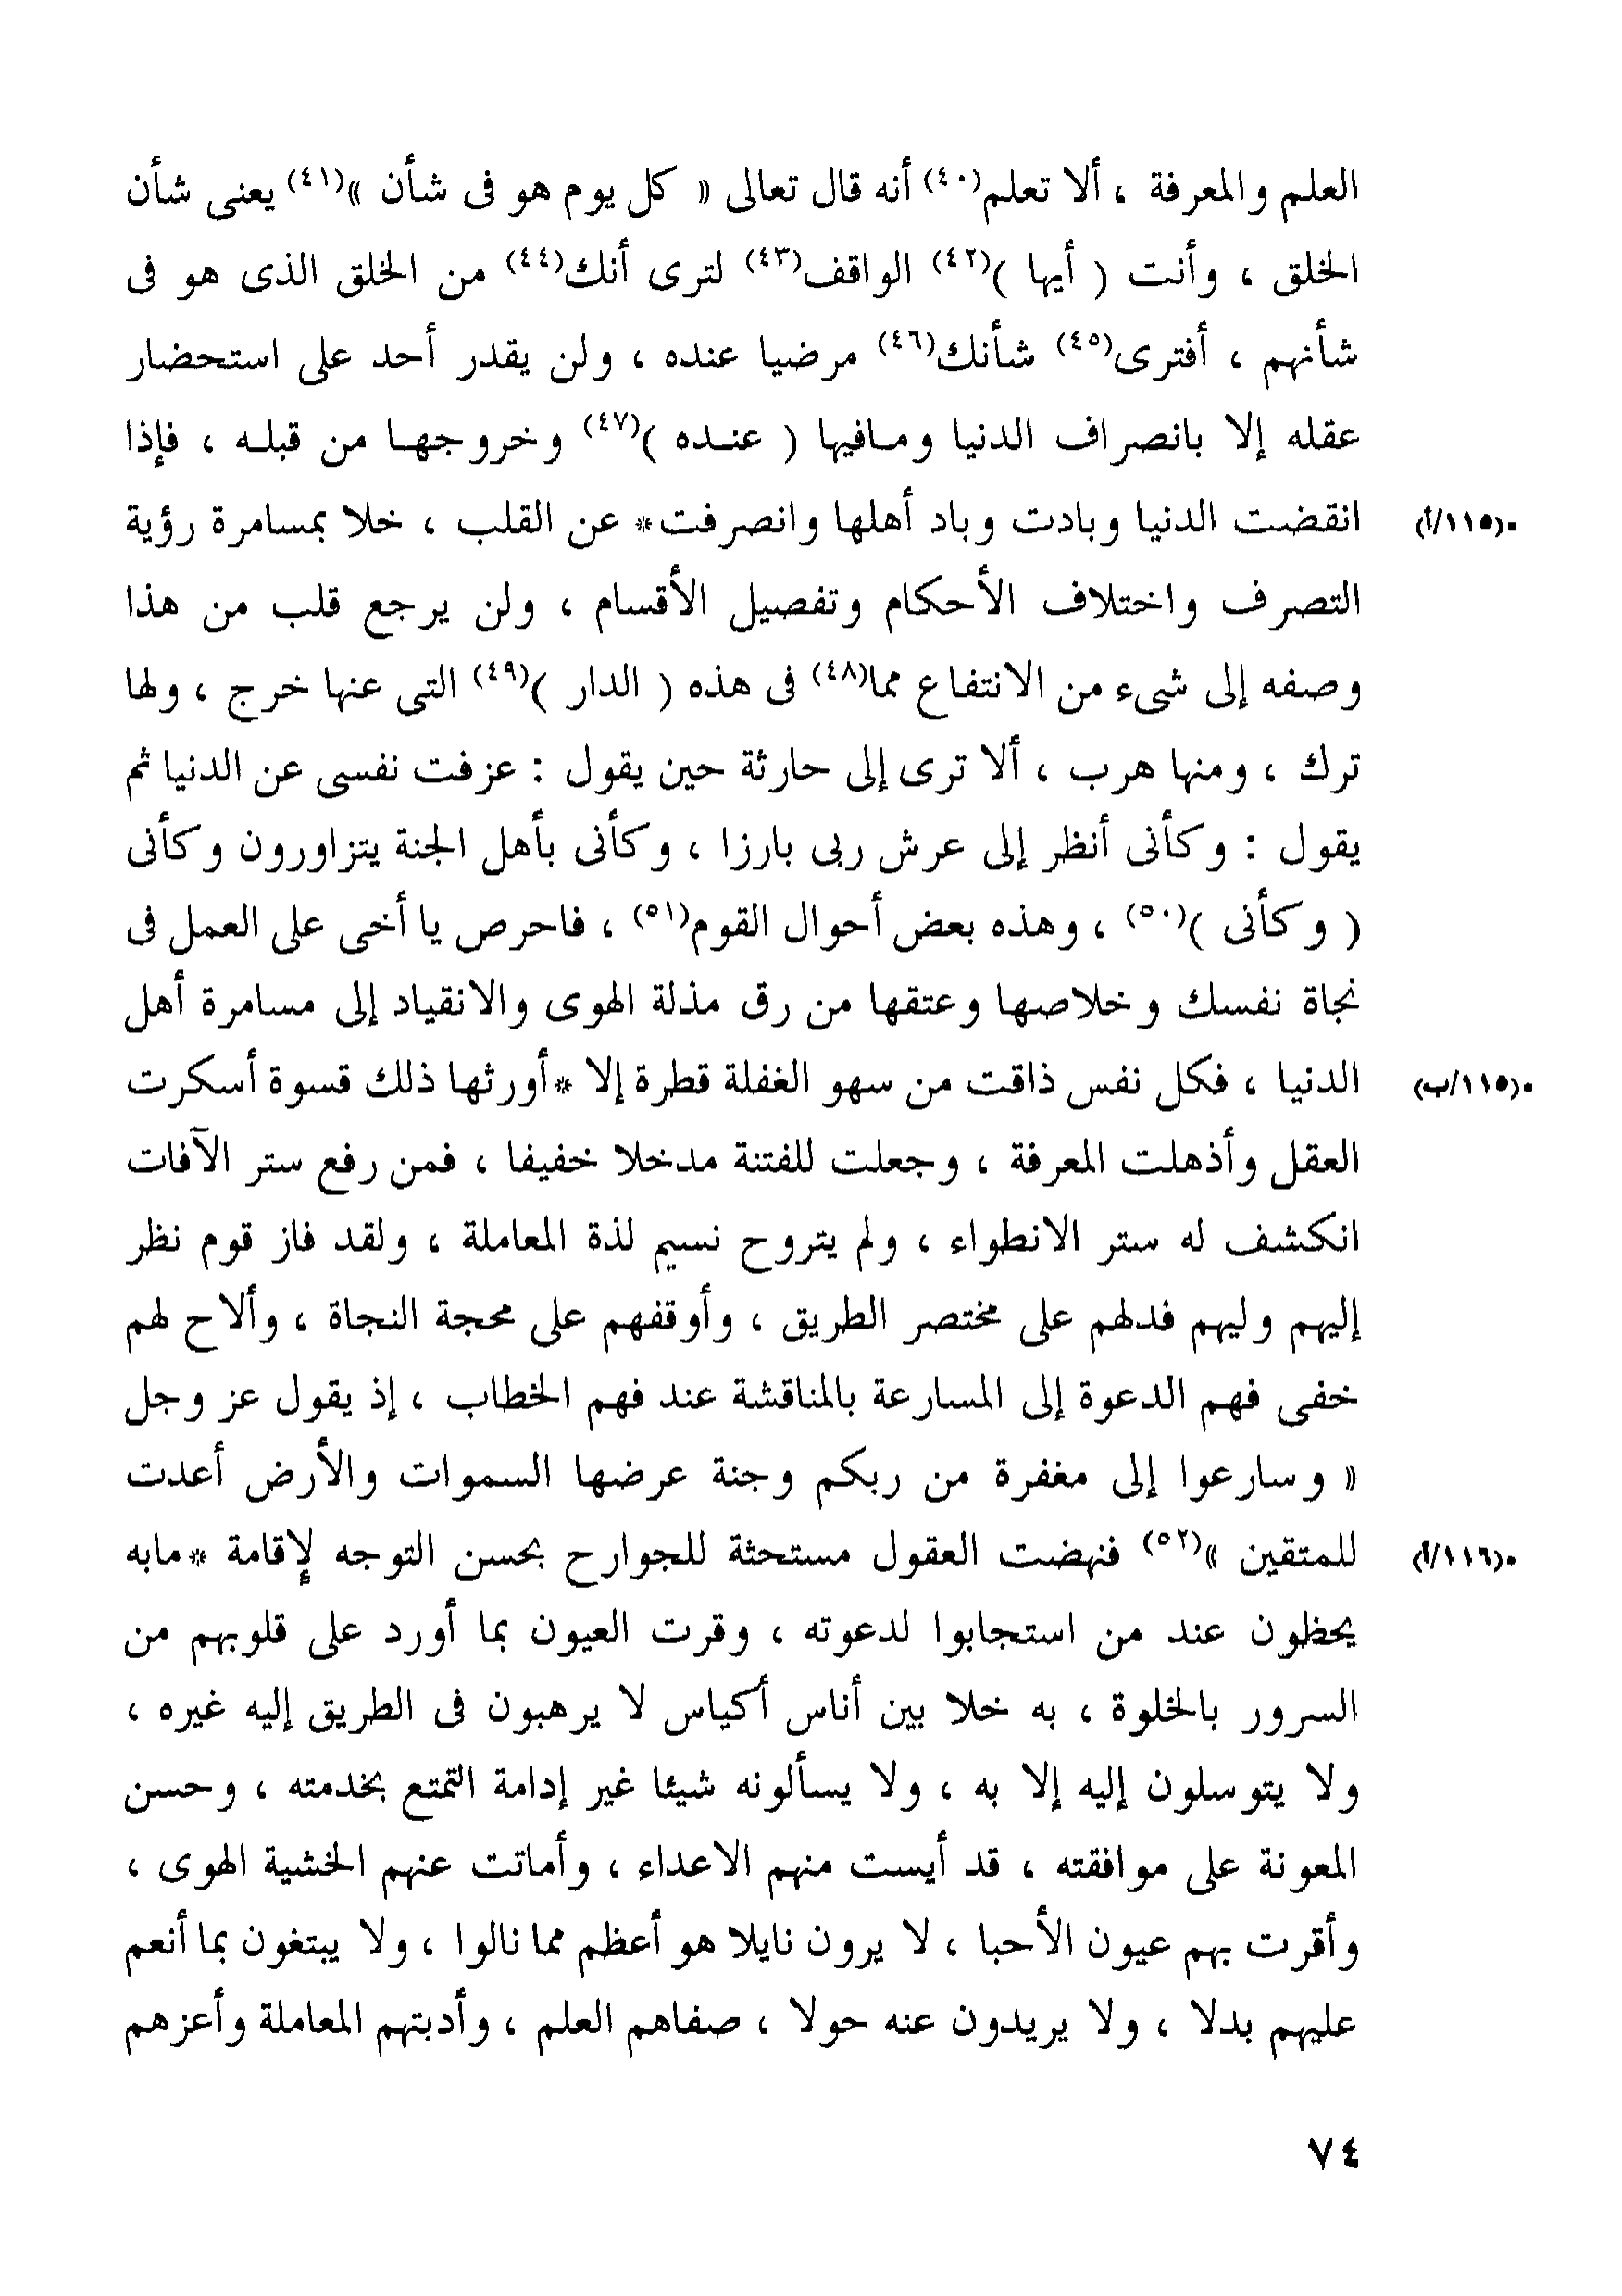 العلم والمعرفة ، ألا تعلم(٤٠) أنه قال تعالى « كل يوم هو فى شأن »(٤١) يعنى شأن
الخلق ، وأنت ( أيها )(٤٢) الواقف(٤٣) لترى أنك(٤٤) من الخلق الذى هو فى
شأنهم ، أفترى(٤٥) شأنك(٤٦) مرضيا عنده ، ولن يقدر أحد على استحضار
عقله إلا بانصراف الدنيا ومافيها ( عنده )(٤٧) وخروجها من قبله ، فإذا
انقضت الدنيا وبادت وباد أهلها وانصرفت* عن القلب ، خلا بمسامرة رؤية
•(١١٥/أ)
التصرف واختلاف الأحكام وتفصيل الأقسام ، ولن يرجع قلب من هذا
وصفه إلى شىء من الانتفاع مما(٤٨) فى هذه ( الدار )(٤٩) التى عنها خرج ، ولها
ترك ، ومنها هرب ، ألا ترى إلى حارثة حين يقول : عزفت نفسى عن الدنيا ثم
يقول : وكأنى أنظر إلى عرش ربى بارزا ، وكأنى بأهل الجنة يتزاورون وكأنى
( وكأنى )(٥٠) ، وهذه بعض أحوال القوم(٥١) ، فاحرص يا أخى على العمل فى
نجاة نفسك وخلاصها وعتقها من رق مذلة الهوى والانقياد إلى مسامرة أهل
الدنيا ، فكل نفس ذاقت من سهو الغفلة قطرة إلا *أورثها ذلك قسوة أسكرت
•(١١٥/ب)
العقل وأذهلت المعرفة ، وجعلت للفتنة مدخلا خفيفا ، فمن رفع ستر الآفات
انكشف له ستر الانطواء ، ولم يتروح نسيم لذة المعاملة ، ولقد فاز قوم نظر
إليهم وليهم فدلهم على مختصر الطريق ، وأوقفهم على محجة النجاة ، وألاح لهم
خفى فهم الدعوة إلى المسارعة بالمناقشة عند فهم الخطاب ، إذ يقول عز وجل
« وسارعوا إلى مغفرة من ربكم وجنة عرضها السموات والأرض أعدت
للمتقين »(٥٢) فنهضت العقول مستحثة للجوارح بحسن التوجه لإقامة *مابه
•(١١٦/أ)
يحظون عند من استجابوا لدعوته ، وقرت العيون بما أورد على قلوبهم من
السرور بالخلوة ، به خلا بين أناس أكياس لا يرهبون فى الطريق إليه غيره ،
ولا يتوسلون إليه إلا به ، ولا يسألونه شيئا غير إدامة التمتع بخدمته ، وحسن
المعونة على موافقته ، قد أيست منهم الاعداء ، وأماتت عنهم الخشية الهوى ،
وأقرت بهم عيون الأحبا ، لا يرون نايلا هو أعظم مما نالوا ، ولا يبتغون بما أنعم
عليهم بدلا ، ولا يريدون عنه حولا ، صفاهم العلم ، وأدبتهم المعاملة وأعزهم
٧٤